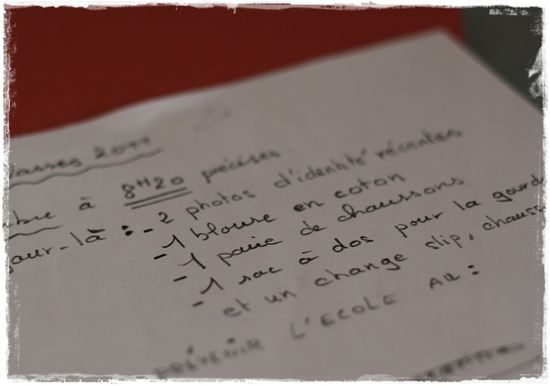 Classes 2011
à 8H20 précises.
jour-là : - 2 photos d'identité récentes
- 1 blouse en coton
- 1 paire de chaussons
- 1 sac à dos pour la gourde
- et un change slip, chauss
PRÉVENIR L'ECOLE AU :